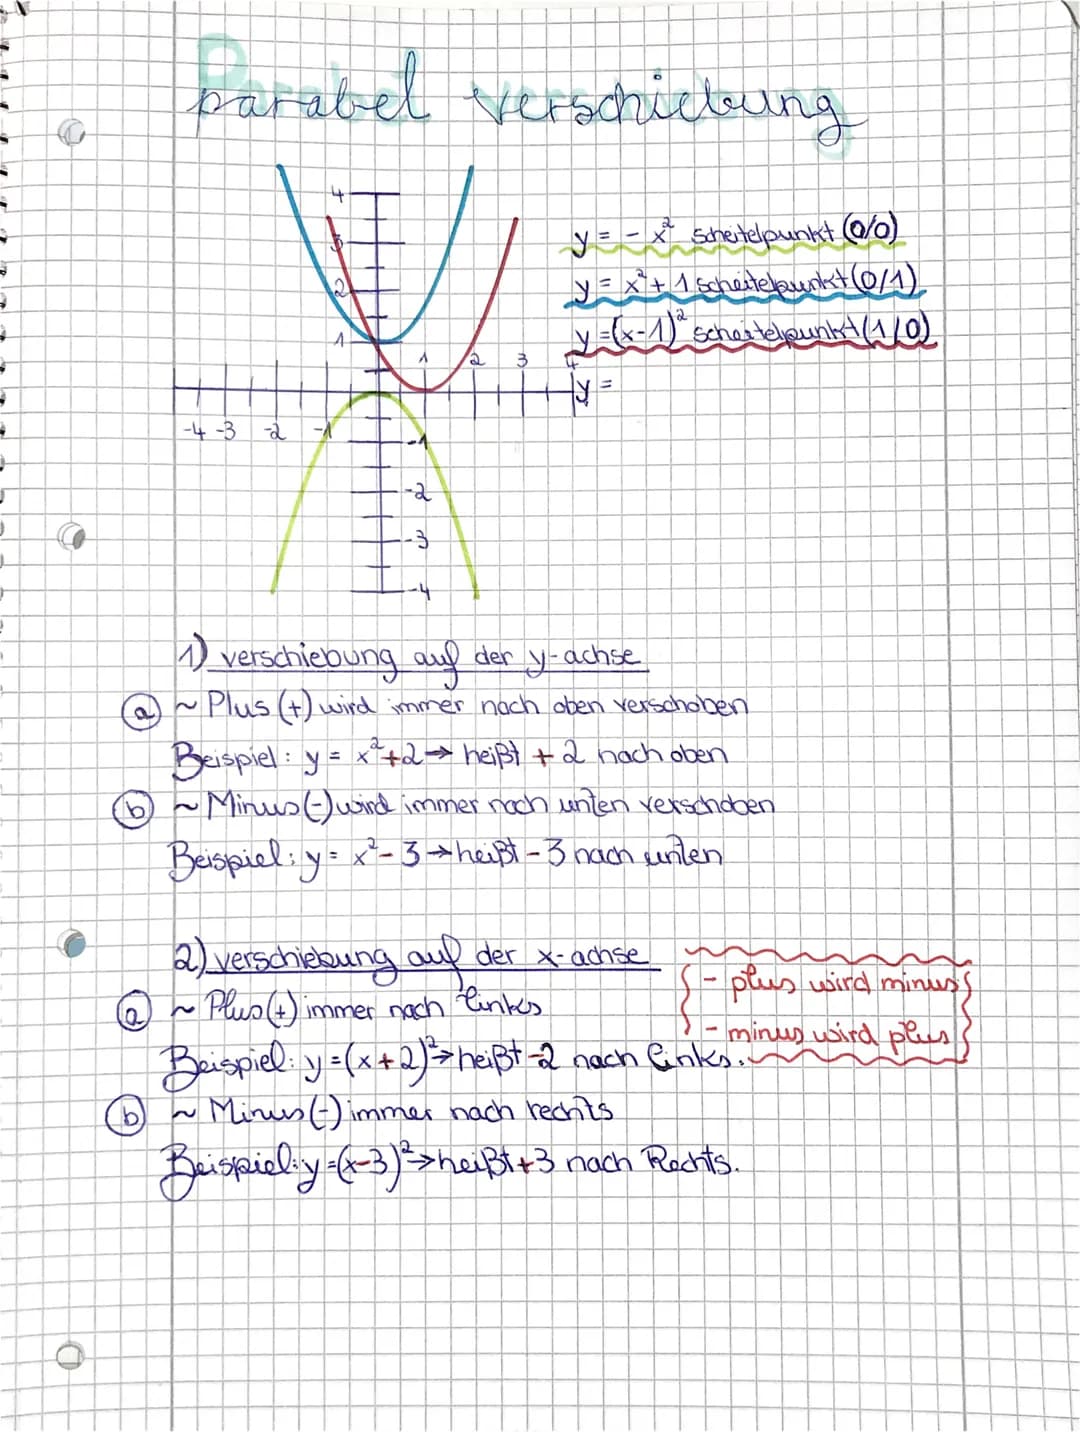 Parabel verschiebung
4
3
2
1
1 2 3 4
-4 -3 -2 -1
-1
-2
-3
-4
y = - x² scheitelpunkt (0/0)
y = x² + 1 scheitelpunkt (0/1)
y = (x-1)² scheitelpunkt (1/0)
y =
1) verschiebung auf der y-achse
a ~ Plus (+) wird immer nach oben verschoben
Beispiel: y = x²+2 → heißt + 2 nach oben
b ~ Minus (-) wird immer nach unten verschoben
Beispiel: y = x² - 3 → heißt - 3 nach unten
2) verschiebung auf der x-achse
- plus wird minus
- minus wird plus
a ~ Plus (+) immer nach links
Beispiel: y = (x+2)² → heißt -2 nach links.
b ~ Minus (-) immer nach rechts
Beispiel: y = (x-3)² → heißt +3 nach Rechts.